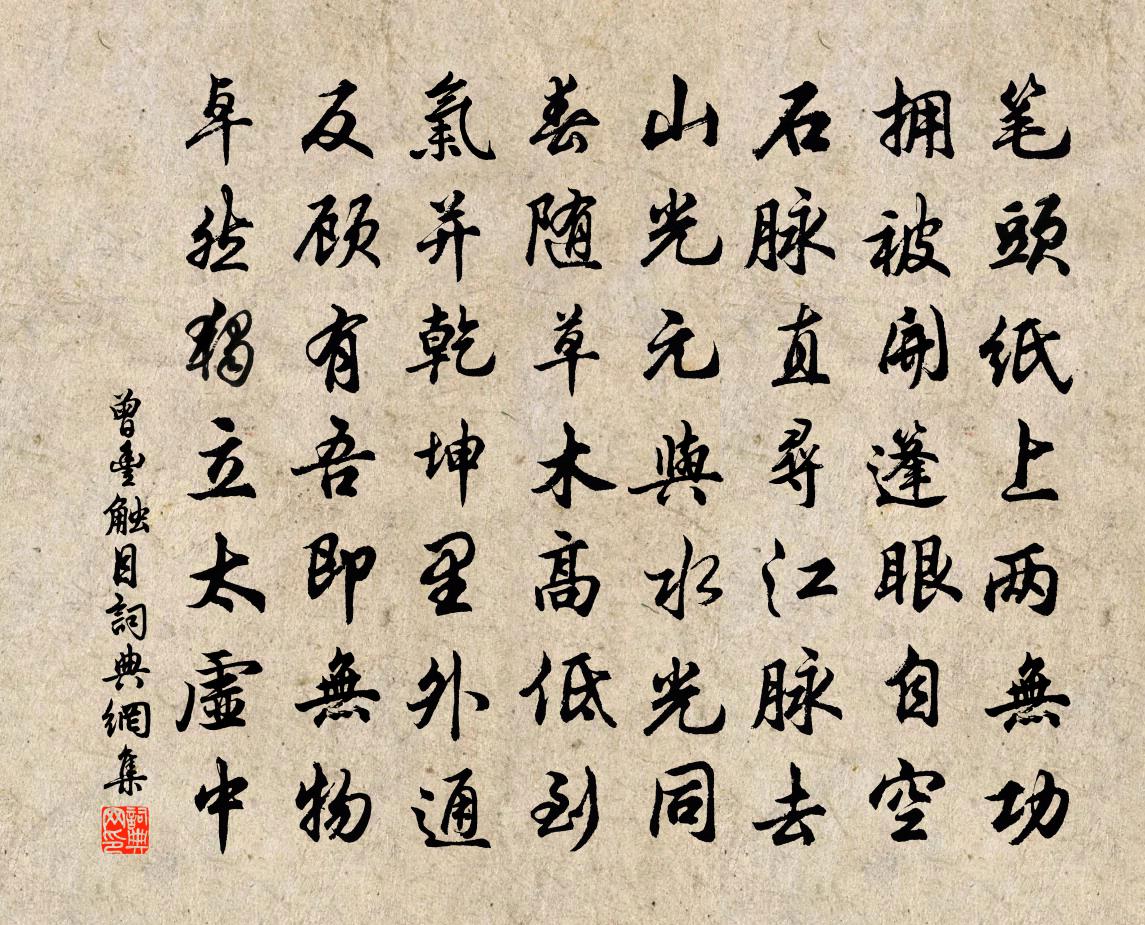 笔頭紙上两無功
拥被開蓬眼自空
石脉直尋江脉去
山光元與水光同
春随草木高低到
氣并乾坤里外通
反顾有吾即無物
卓然獨立太虛中
曾豊触目詞典網集
詞典网印